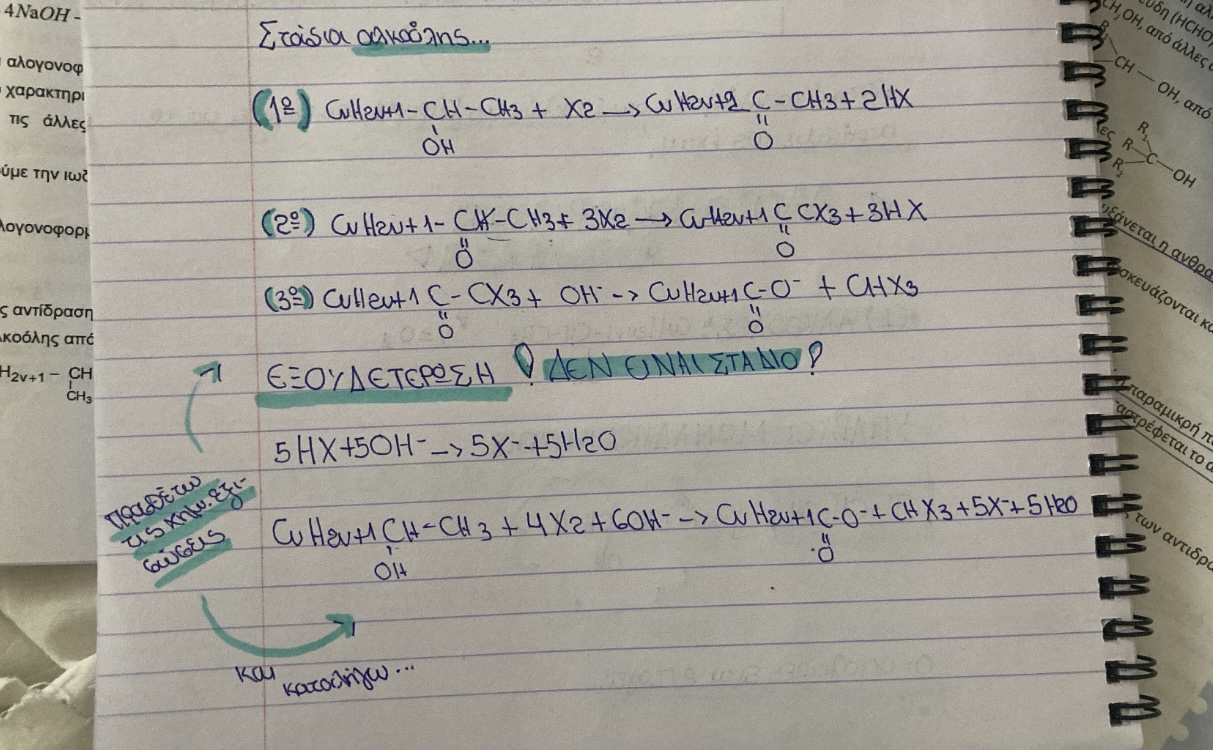 4NaOH -
αλογονοφ
χαρακτηρι
τις άλλες
ούμε την ιωδ
λογονοφορμ
ς αντίδραση
κοόλης από
H2ν+1 – CH
CH3
Στάδια αλκοόλης...
(1º) CνH2ν+1 – CH – CH3 + X2 → CνH2ν+2 C – CH3 + 2HX
OH O
(2º) CνH2ν+1 – CH – CH3 + 3X2 → CνH2ν+1 C CX3 + 3HX
O O
(3º) CνH2ν+1 C – CX3 + OH⁻ → CνH2ν+1 C-O⁻ + CHX3
O O
ΕΞΟΥΔΕΤΕΡΩΣΗ ! ΔΕΝ ΕΙΝΑΙ ΣΤΑΔΙΟ !
5HX + 5OH⁻ → 5X⁻ + 5H2O
προσθέτω
τις χημ. εξι-
σώσεις
CνH2ν+1 CH – CH3 + 4X2 + 6OH⁻ → CνH2ν+1 C-O⁻ + CHX3 + 5X⁻ + 5H2O
OH O
και
καταλήγω...
ύδη (HCHO)
CH2OH, από άλλες
R
CH – OH, από
R1
R – C – OH
R2
ξάνεται η ανθρα
σκευάζονται κα
παραμικρή π
ατρέφεται το α
των αντιδρα